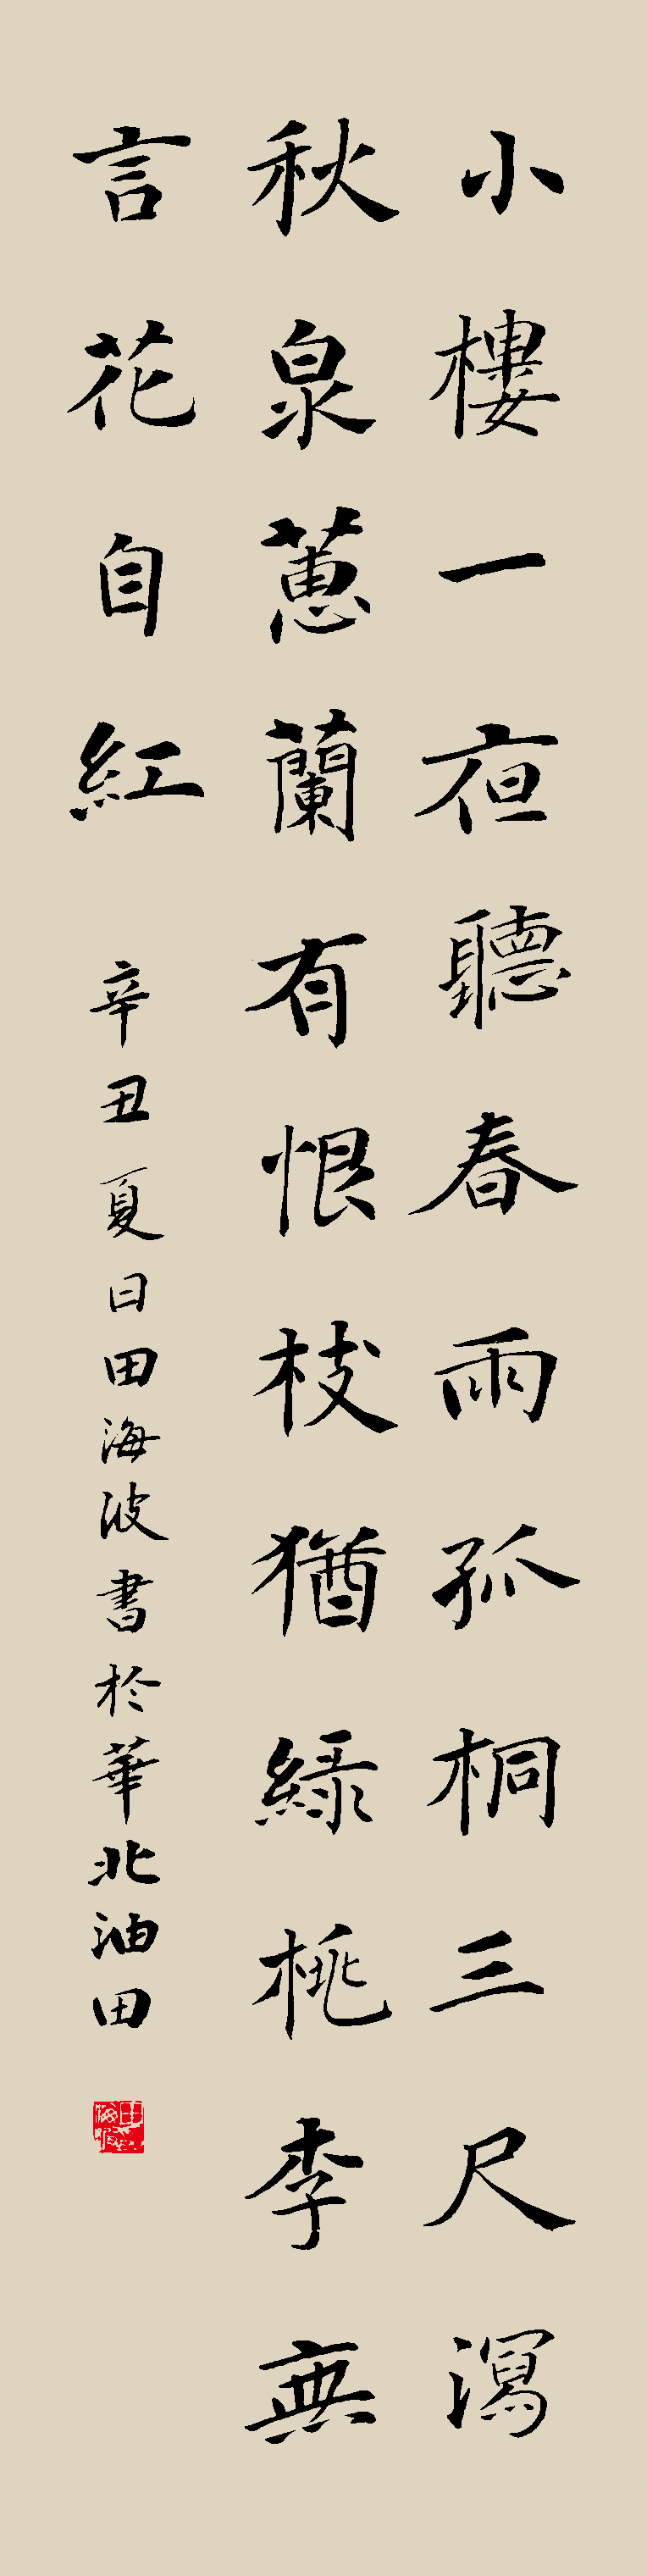 小樓一夜聽春雨孤桐三尺瀉
秋泉蕙蘭有恨枝猶綠桃李無
言花自紅
辛丑夏日田海波書於華北油田